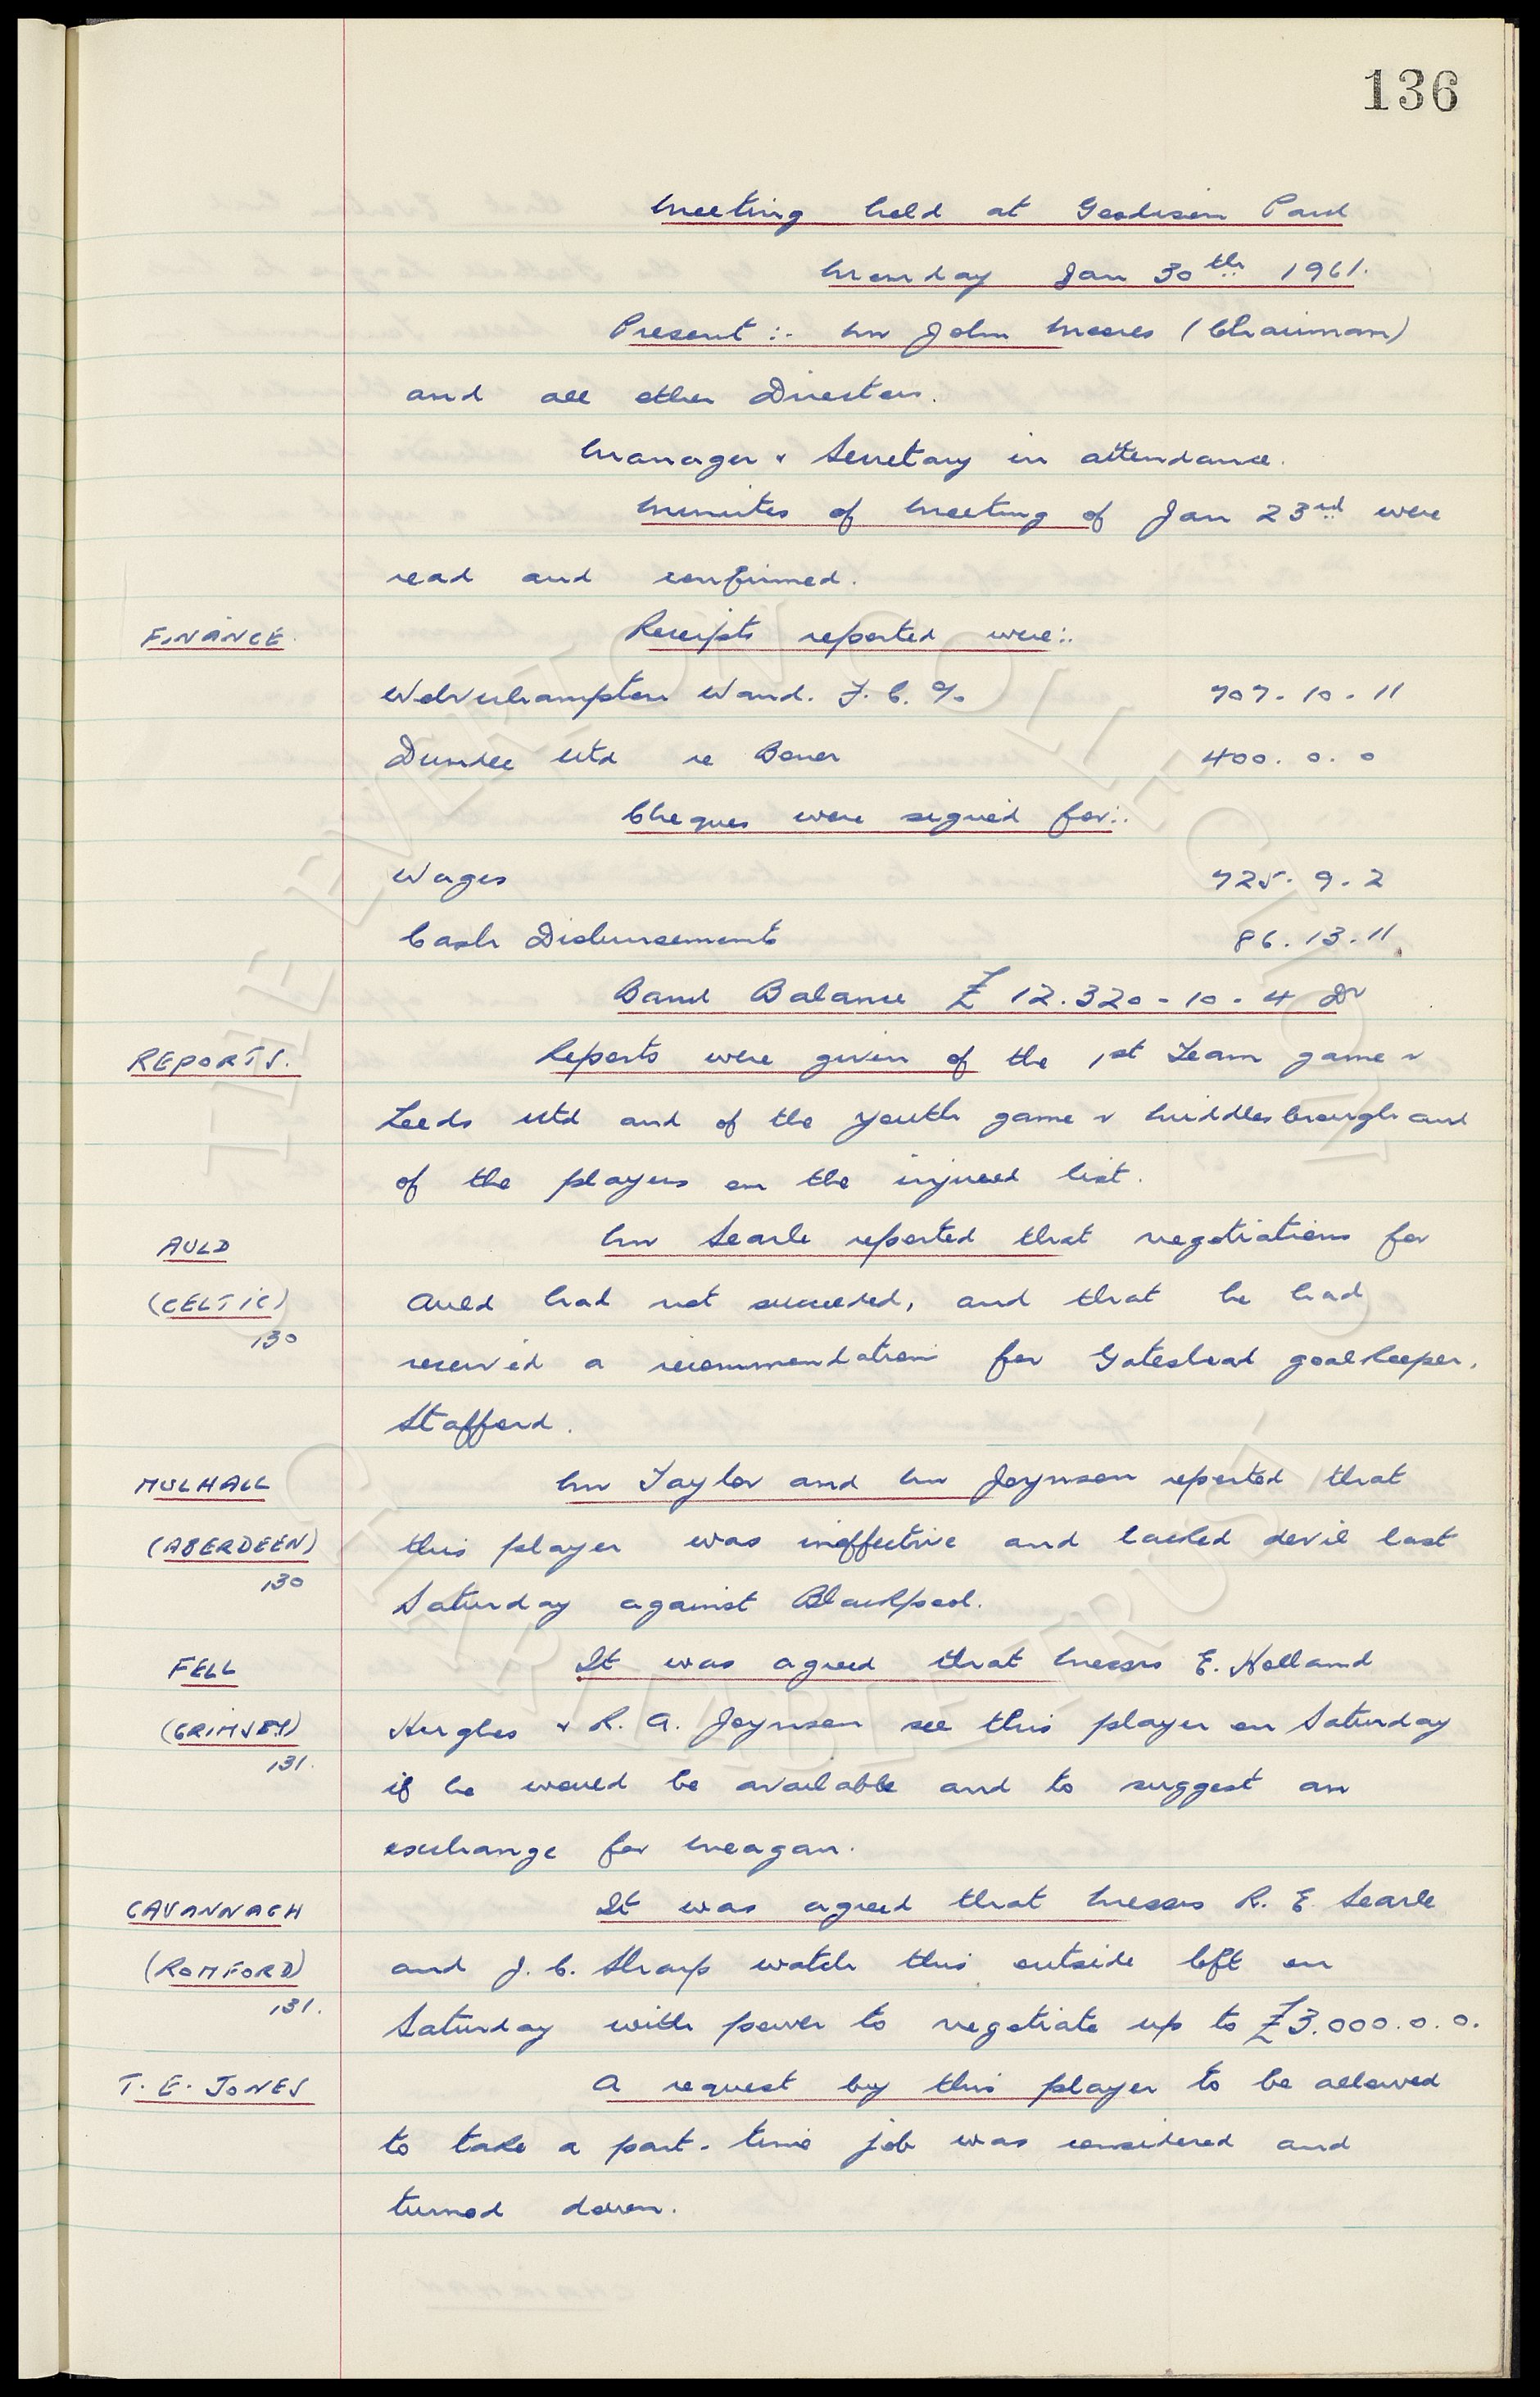 136
Meeting held at Goodison Park
Monday Jan 30th 1961.
Present :- Mr John Moores (Chairman)
and all other Directors.
Manager & Secretary in attendance.
Minutes of Meeting of Jan 23rd were
read and confirmed.
FINANCE. Receipts reported were:-
Wolverhampton Wand. F.C. % 707-10-11
Dundee Utd re Boner 400. 0. 0
Cheques were signed for:-
Wages 725. 9. 2
Cash Disbursements 86. 13. 11
Bank Balance £12.320-10-4 Dr
REPORTS. Reports were given of the 1st Team game v
Leeds Utd and of the Youth game v Middlesbrough and
of the players on the injured list.
AULD Mr Searle reported that negotiations for
(CELTIC) Auld had not succeeded, and that he had
130
received a recommendation for Gateshead goalkeeper,
Stafford.
MULHALL Mr Taylor and Mr Joynson reported that
(ABERDEEN) this player was ineffective and lacked devil last
130
Saturday against Blackpool.
FELL It was agreed that Messrs E. Holland
(GRIMSBY) Hughes & R. A. Joynson see this player on Saturday
131.
if he would be available and to suggest an
exchange for Meagan.
CAVANNAGH It was agreed that Messrs R. E. Searle
(ROMFORD) and J. C. Sharp watch this outside left on
131.
Saturday with power to negotiate up to £3.000.0.0.
T. E. JONES A request by this player to be allowed
to take a part-time job was considered and
turned down.
THE EVERTON COLLECTION